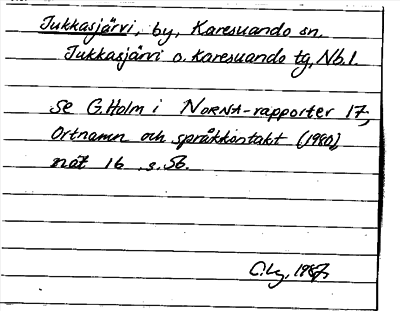 Jukkasjärvi, by, Karesuando sn.
Jukkasjärvi o. Karesuando tg, Nb.l.
Se G. Holm i NORNA-rapporter 17,
Ortnamn och språkkontakt (1980)
not 16 s. 56.
C.Lg, 1987,